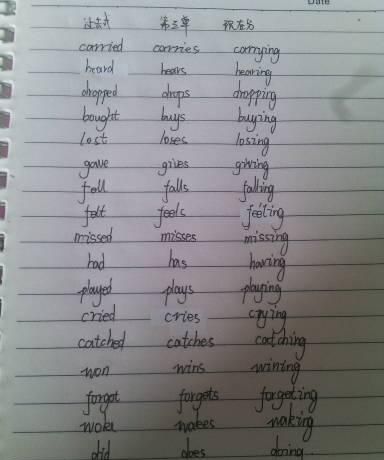 Date
过去式 第三单 现在分
carried carries carrying
heard hears hearing
dropped drops dropping
bought buys buying
lost loses losing
gave gives giving
fell falls falling
felt feels feeling
missed misses missing
had has having
played plays playing
cried cries crying
catched catches catching
won wins wining
forgot forgets forgeting
woke wakes waking
did does doing